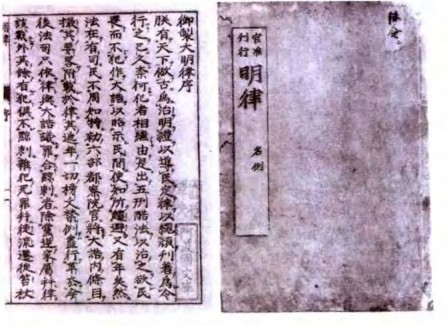 御製大明律序
朕有天下倣古爲治明禮以導民定律以繩頑刊著爲令
行之已久奈何犯者相繼由是出五刑酷法以治之欲民
畏而不犯作大誥以昭示民間使知所趨避又有年矣然
法在有司民不周知特勑六部都察院官將大誥内條目
撮其要畧附載於律其遞年一切榜文禁例盡行革去今
後法司只依律與大誥議罪合黥刺者除黨逆家屬幷律
該載外其餘有犯俱不黥刺雜犯死罪幷徒流遷徙笞杖
官准
刊行
明律
名例